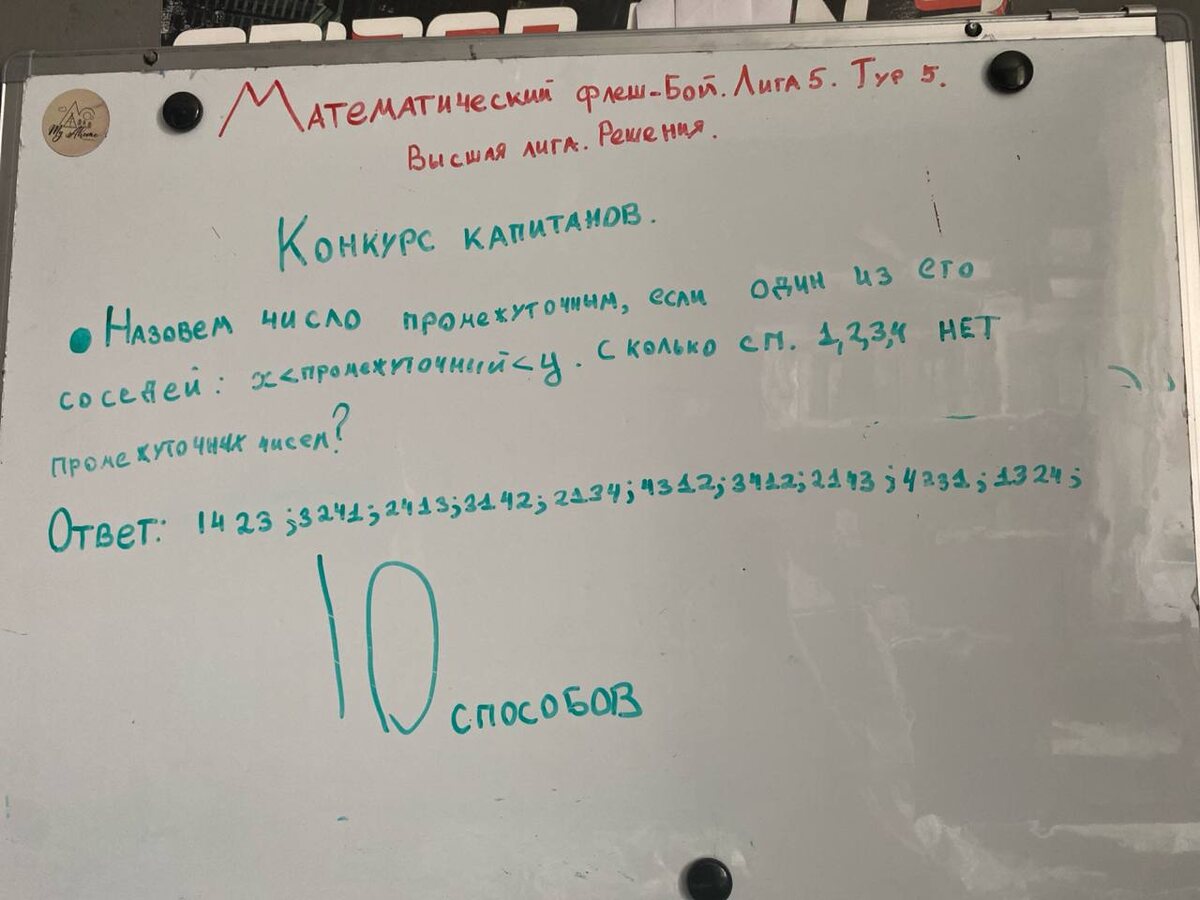 Математический флеш-Бой. Лига 5. Тур 5.
Высшая лига. Решения.
Конкурс капитанов.
• Назовем число промежуточным, если один из его
соседей: x<промежуточный<y. Сколько сп. 1,2,3,4 нет
промежуточных чисел?
Ответ: 1423;3241;2413;3142;2134;4312;3412;2143;4231;1324;
10 способов